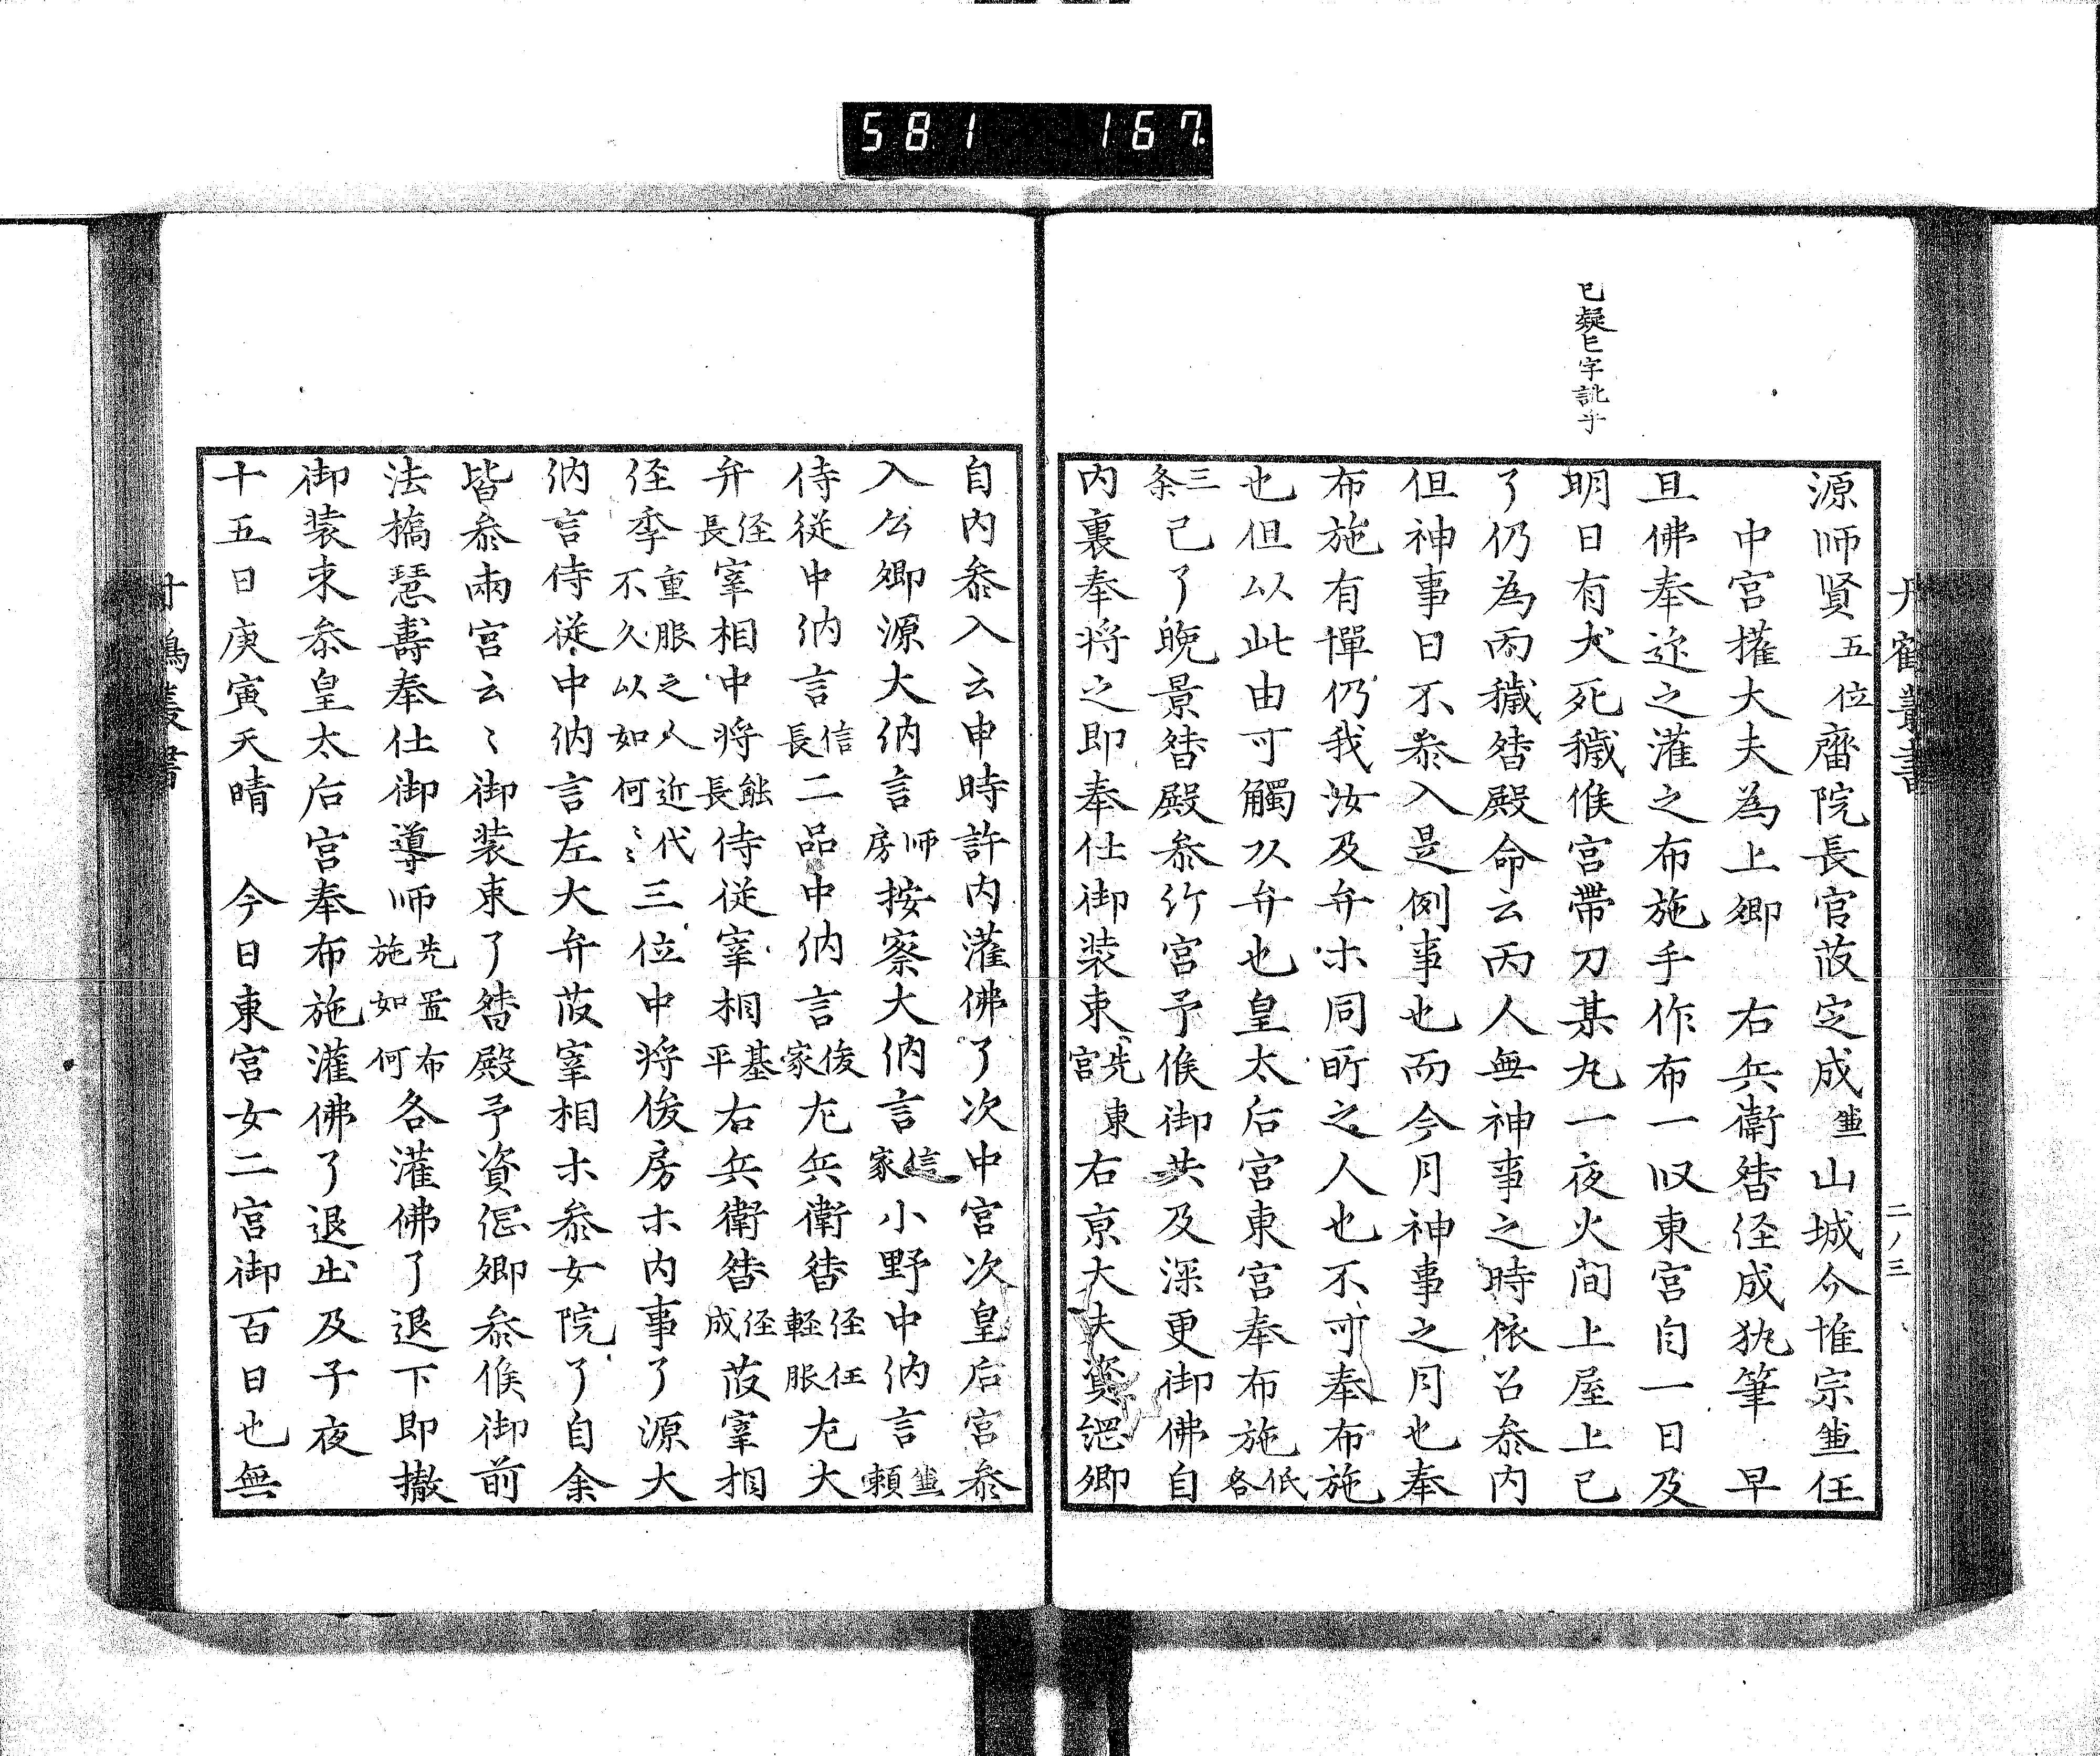 581 167
已疑亡字訛乎
丹鶴叢書
二ノ三
源師賢五位齋院長官菽定成兼山城介惟宗兼任
中宮權大夫為上卿 右兵衛督経成執筆 早
旦佛奉迎之灌之布施手作布一以東宮自一日及
明日有犬死穢候宮帶刀某丸一夜火間上屋上已
了仍為丙穢督殿命云丙人無神事之時依召参内
但神事日不参入是例事也而今月神事之月也奉
布施有憚仍我汝及弁ホ同所之人也不可奉布施
也但以此由可觸双弁也皇太后宮東宮奉布施各低
三条已了晩景督殿参行宮予候御共及深更御佛自
内裏奉将之即奉仕御装束先東宮右京大夫資綱卿
自内参入云申時許内灌佛了次中宮次皇后宮参
入公卿源大納言師房按察大納言信家小野中納言兼頼
侍従中納言信長二品中納言俊家左兵衛督経任軽服左大
弁経長宰相中将能長侍従宰相基平右兵衛督経成菽宰相
経季重服之人近代不久以如何〻〻三位中将俊房ホ内事了源大
納言侍従中納言左大弁菽宰相ホ参女院了自余
皆参兩宮云〻御装束了督殿予資仲卿参候御前
法橋慧壽奉仕御導師先置布施如何各灌佛了退下即撤
御装束参皇太后宮奉布施灌佛了退出及子夜
十五日庚寅天晴 今日東宮女二宮御百日也無